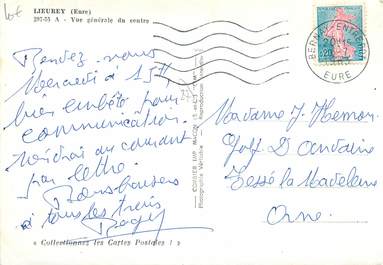 lot
LIEUREY (Eure)
297-55 A - Vue générale du centre
Rendez-vous
Mercredi à 15H
bien embêté pour
communication.
au courant
par lettre.
à tous les trois
Roger
« Collectionnez les Cartes Postales ! »
COMBIER IMP. MACON
Photographie Véritable - Reproduction
BERNAY-ENTREPOT
EURE
Madame J. Hemon
Golf D'Andaine
Tessé la Madeleine
Orne